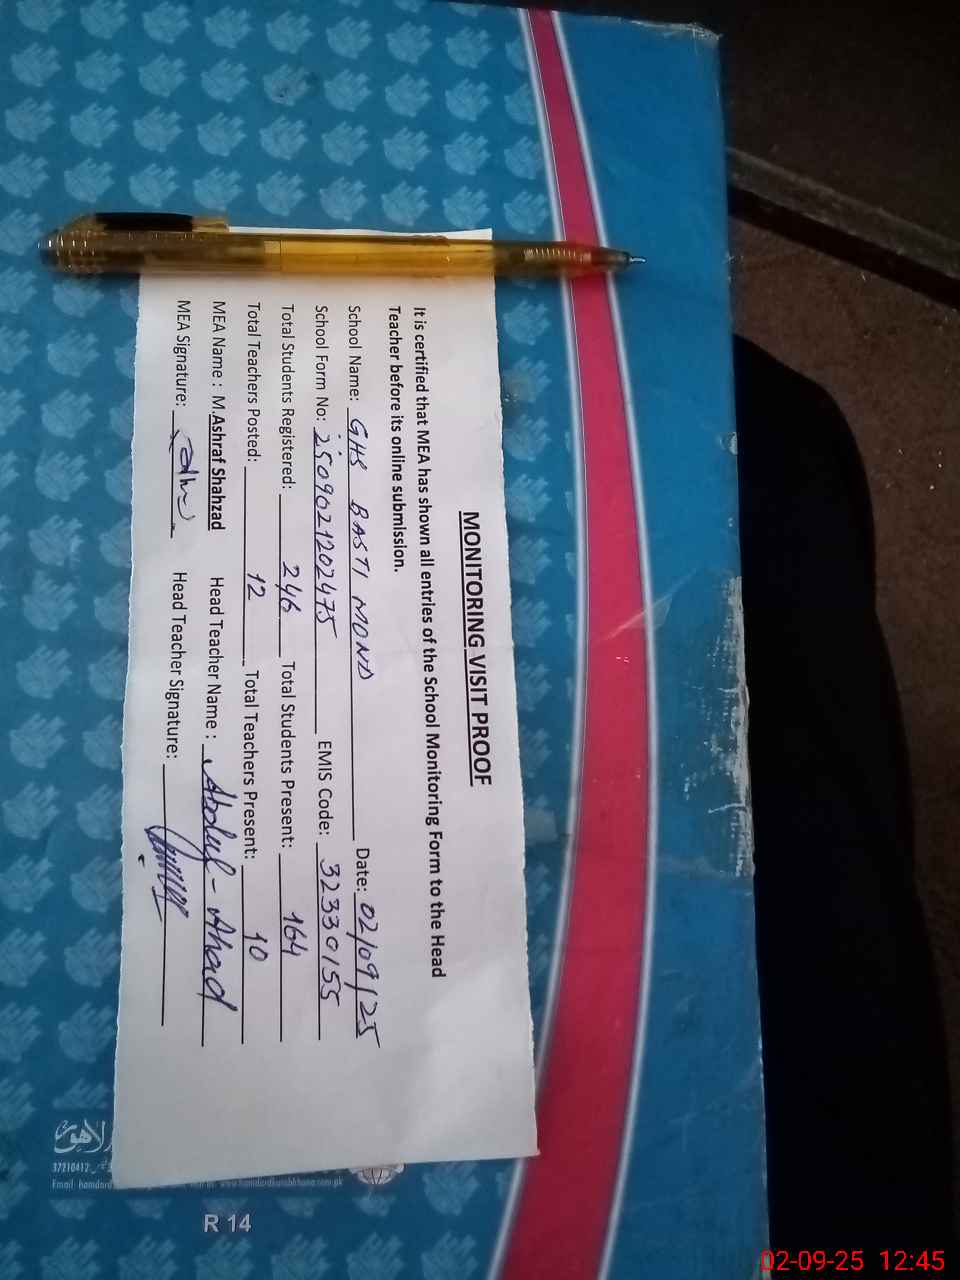 MONITORING VISIT PROOF
It is certified that MEA has shown all entries of the School Monitoring Form to the Head
Teacher before its online submission.
School Name: GHS BASTI MOND Date: 02/09/25
School Form No: 2509021202475 EMIS Code: 32330155
Total Students Registered: 246 Total Students Present: 164
Total Teachers Posted: 12 Total Teachers Present: 10
MEA Name : M.Ashraf Shahzad Head Teacher Name : Abdul-Ahad
MEA Signature: Head Teacher Signature:
لاہور
37210412
Email hamdard www.hamdardkutabkhana.com.pk
R 14
02-09-25 12:45